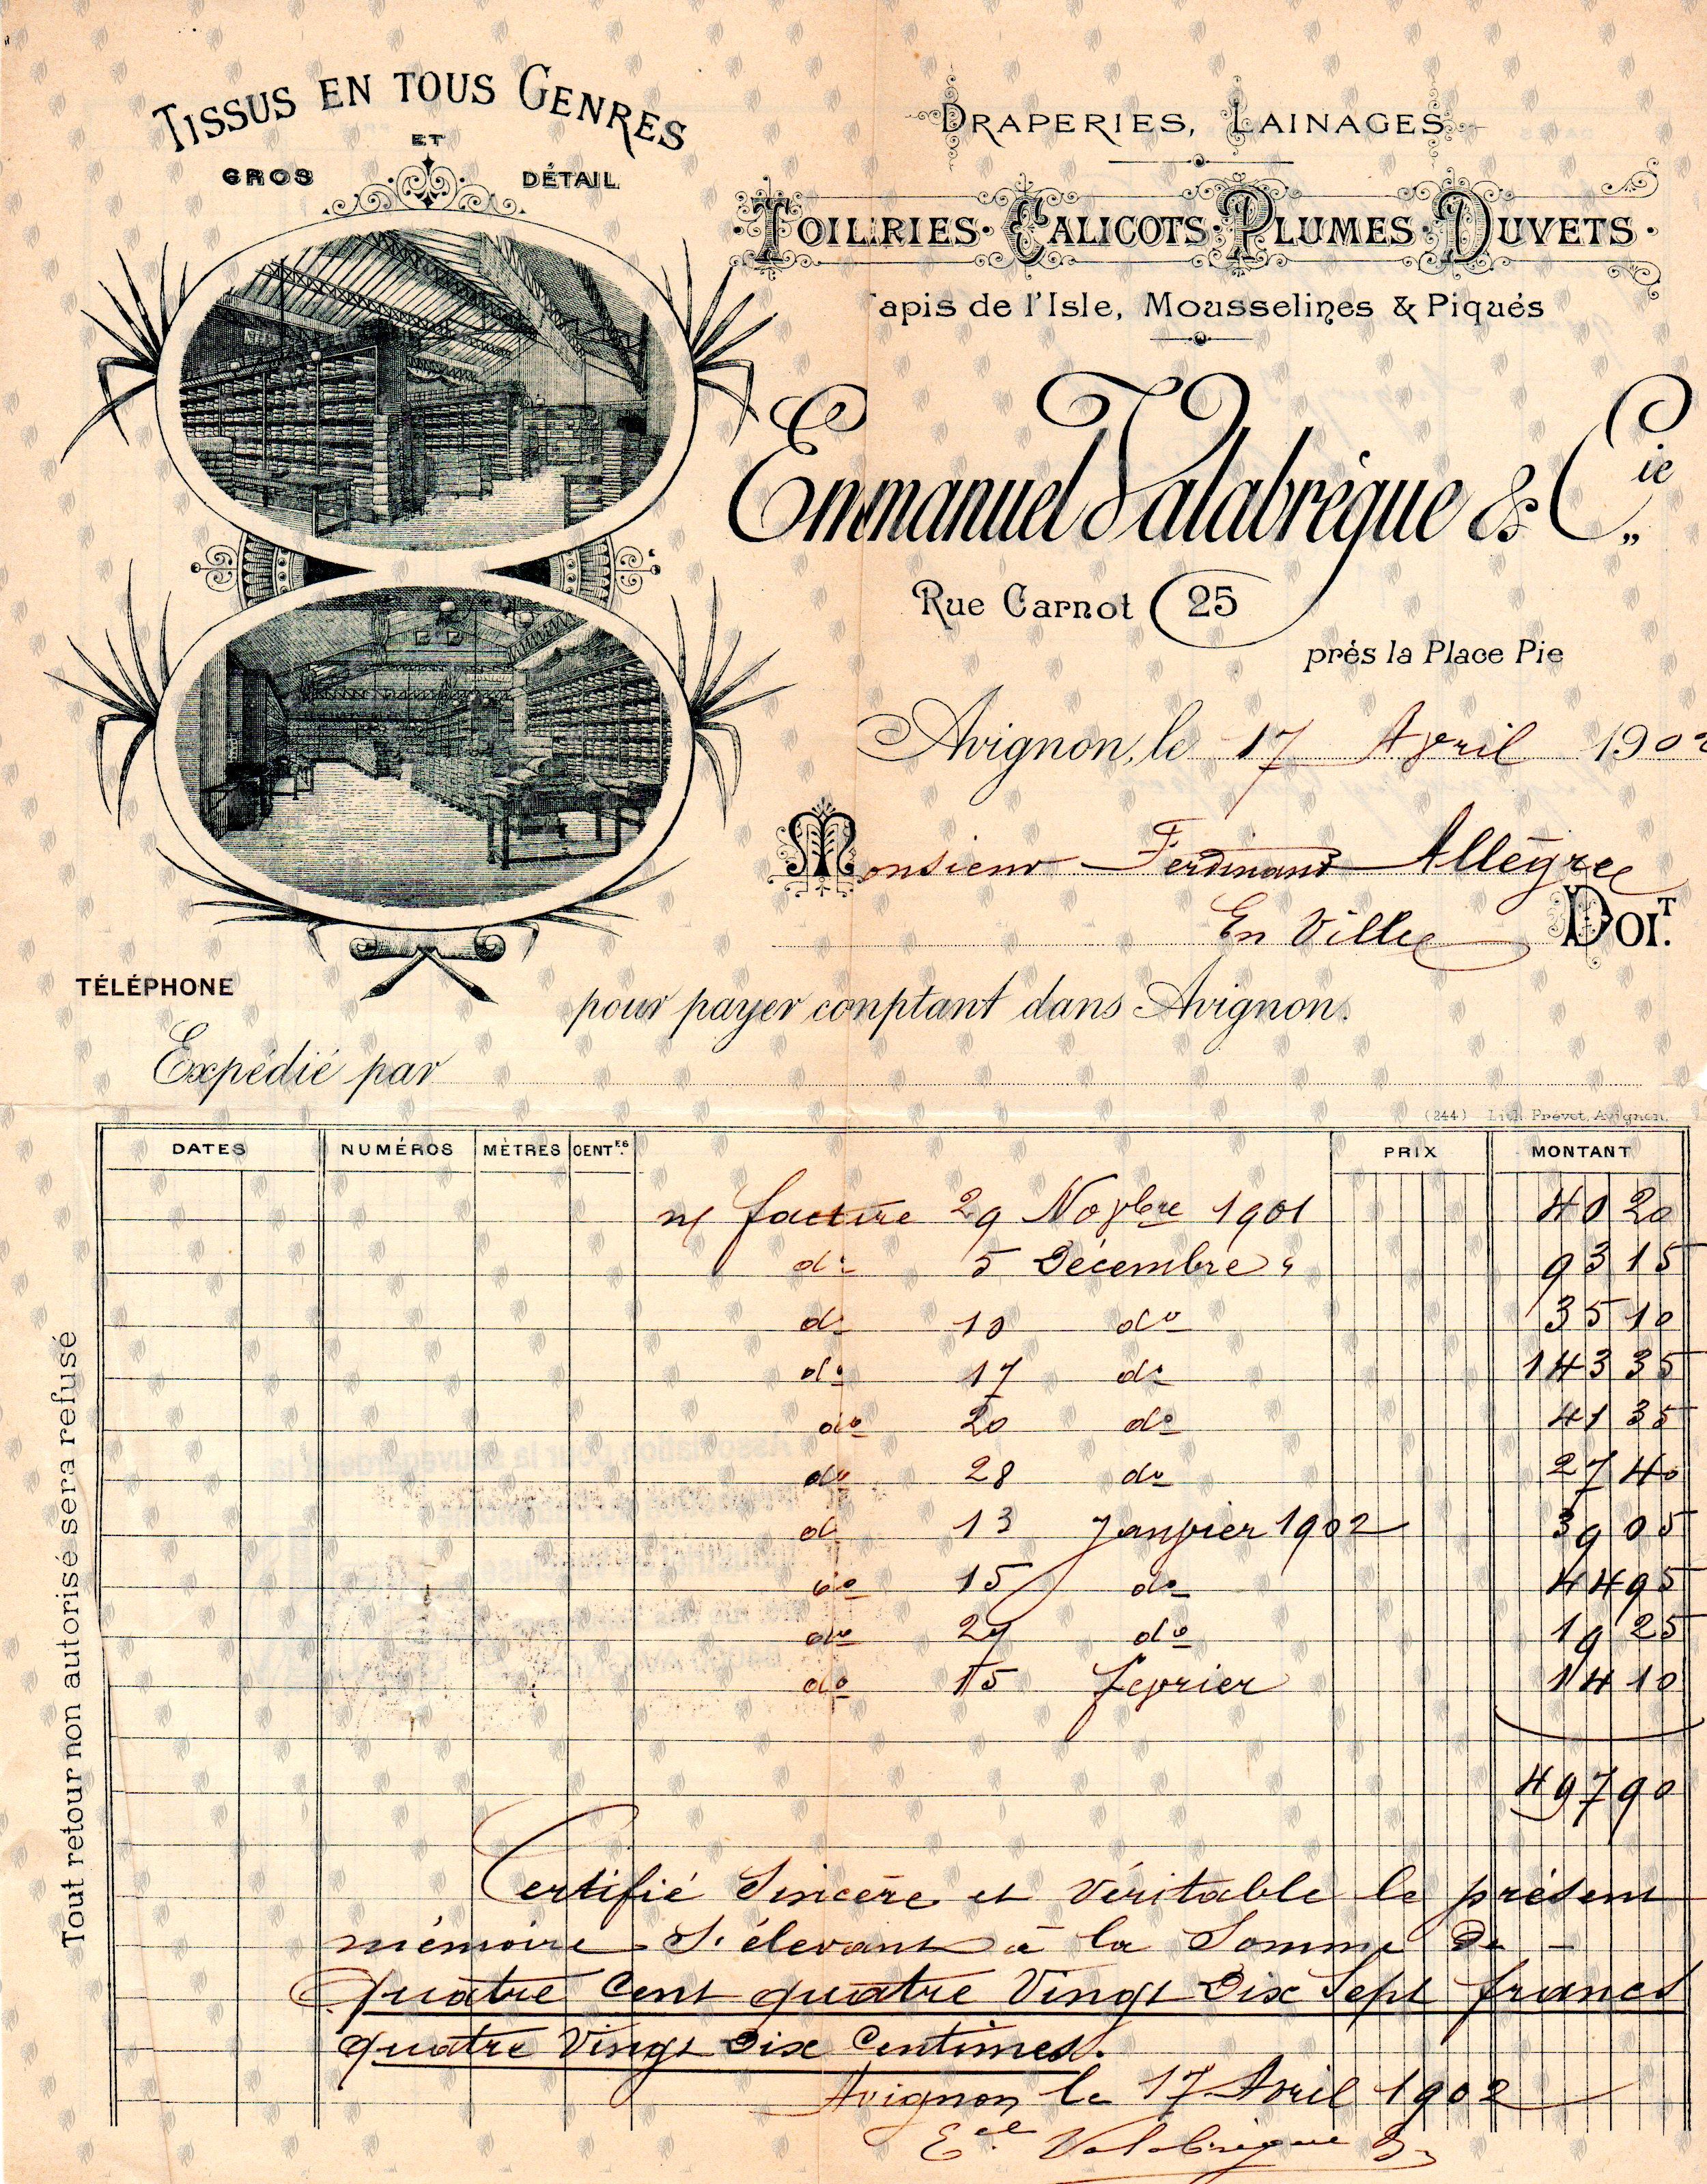 TISSUS EN TOUS GENRES
ET
GROS DÉTAIL
DRAPERIES, LAINAGES
TOILERIES · CALICOTS · PLUMES · DUVETS ·
Tapis de l'Isle, Mousselines & Piqués
Emmanuel Valabrègue & Cie
Rue Carnot 25
près la Place Pie
Avignon, le 17 Avril 1902
Monsieur Ferdinand Allègre
En Ville DOIT.
TÉLÉPHONE
pour payer comptant dans Avignon.
Expédié par
(244) Lith. Prévot, Avignon.
DATES NUMÉROS MÈTRES CENTES PRIX MONTANT
n/ facture 29 Novbre 1901 40 20
do 5 Décembre " 93 15
do 10 do 35 10
do 17 do 143 35
do 20 do 41 35
do 28 do 27 40
do 13 Janvier 1902 39 05
do 15 do 44 95
do 27 do 19 25
do 15 fevrier 14 10
497 90
Certifié Sincère et Véritable le présent
mémoire S'élevant à la Somme De
quatre Cent quatre Vingt Dix Sept francs
quatre Vingt Dix Centimes.
Avignon le 17 Avril 1902
Eel Valabrègue &
Tout retour non autorisé sera refusé